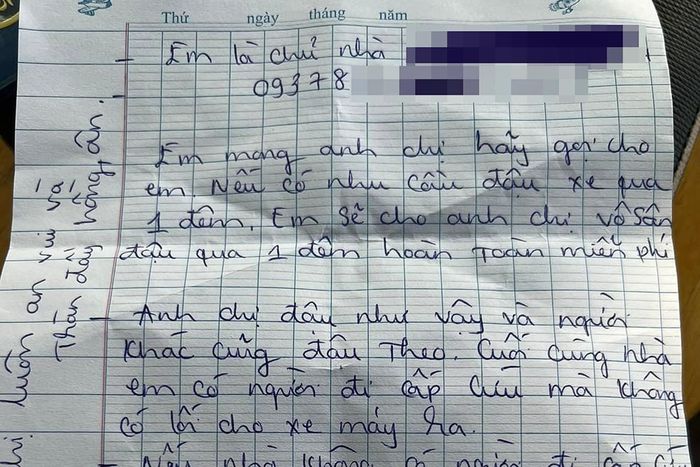 Thứ ngày tháng năm
- Em là chủ nhà
09378
Em mong anh chị hãy gọi cho
em. Nếu có nhu cầu đậu xe qua
1 đêm. Em sẽ cho anh chị vô sân
đậu qua 1 đêm hoàn toàn miễn phí
- Anh chị đậu như vậy và người
khác cũng đậu theo. Cuối cùng nhà
em có người đi cấp cứu mà không
có lối cho xe máy ra.
- Nếu nhà không có người đi
luôn an vui
hồng ân.